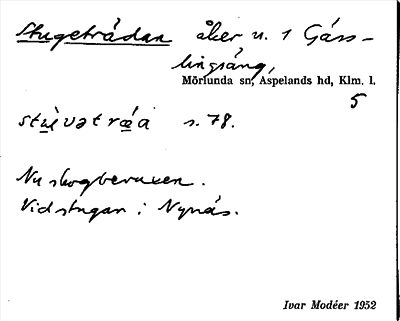 Stugeträdan åker u. 1 Gåss-
lingsäng,
Mörlunda sn, Aspelands hd, Klm. l.
5
stu̱̇̀vət rǽ̱a s. 78.
Nu skogbevuxen.
Vid stugan i Nynäs.
Ivar Modéer 1952